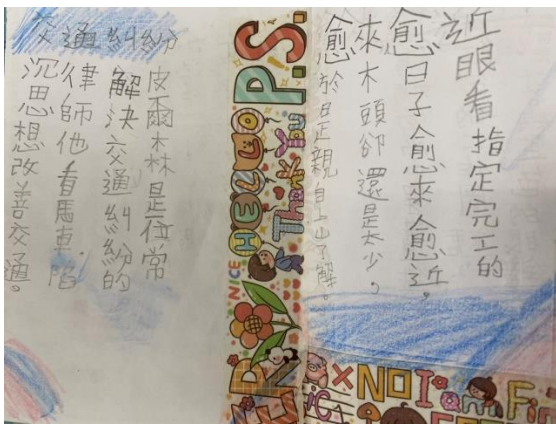 愈來愈近
眼看指定完工的
日子愈來愈近。
木頭卻還是太少，
於是親自上山了解。
交通糾紛
皮爾森是位常
解決交通糾紛的
律師他看馬車陷
沉思想改善交通。
P.S.
HELLO
Thank You
NICE
NO
I am Fin